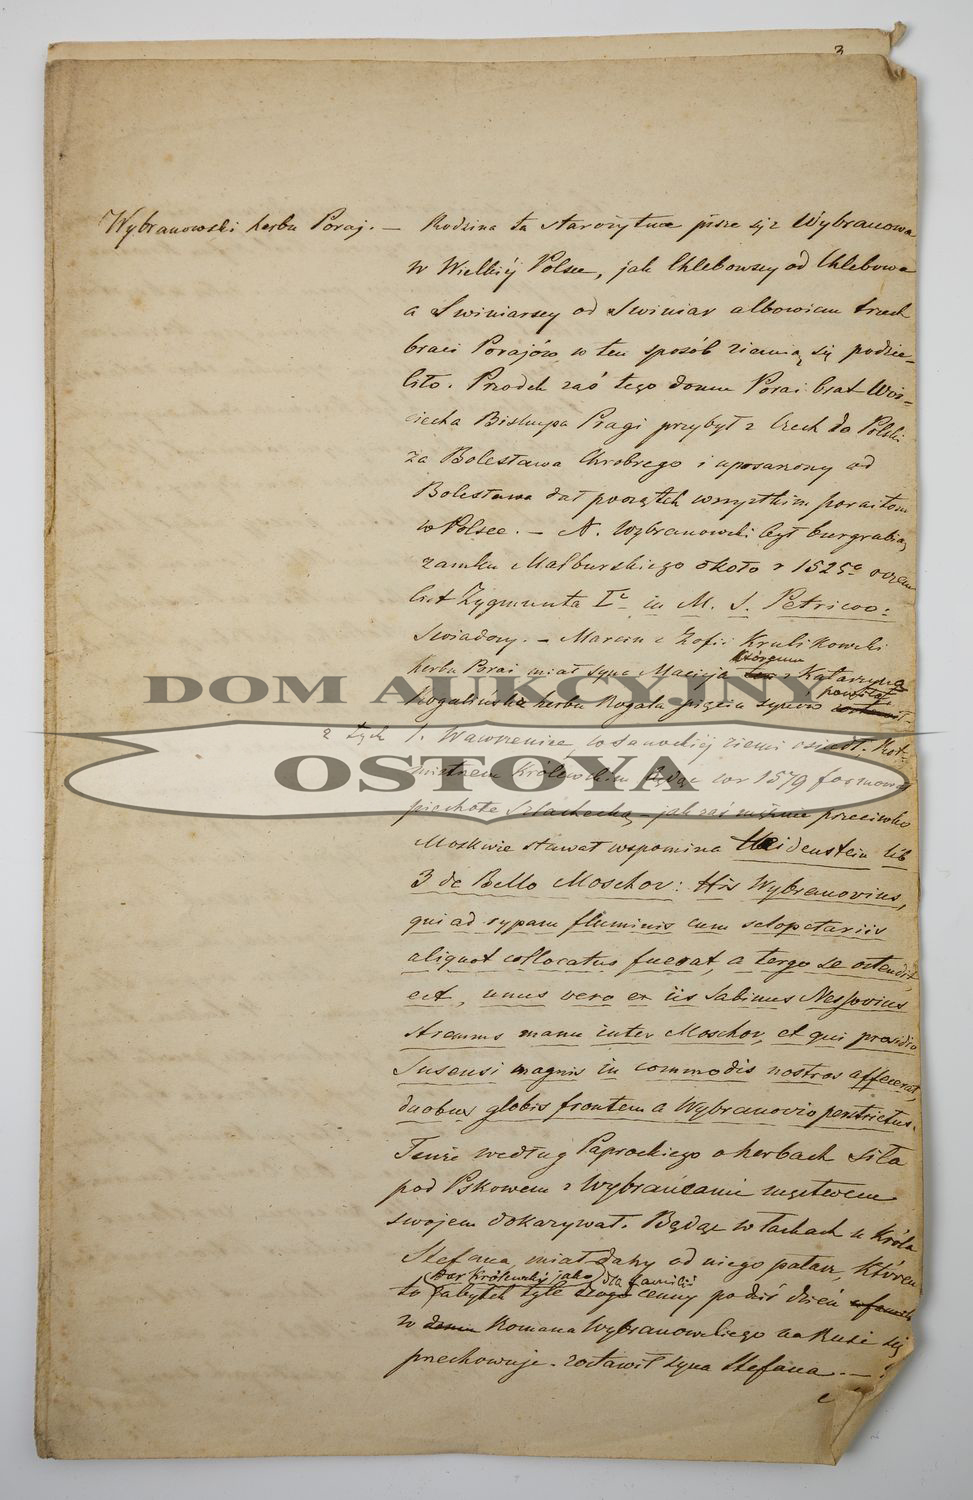 3
Wybranowski herbu Poraj. — Rodzina ta starożytna pisze się z Wybranowa
w Wielkiéj Polsce, jak Chlebowscy od Chlebowa
a Swiniarscy od Swiniar albowiem trzech
braci Porajów w ten sposób ziemią się podzie-
liło. Przodek zaś tego domu Poraj brat Woj-
ciecha Biskupa Pragi przybył z Czech do Polski
za Bolesława Chrobrego i uposarzony od
Bolesława dał początek wszystkim poraitom
w Polsce. — N. Wybranowski był burgrabią
zamku Malburskiego około r 1525º oczem
list Zygmunta Iº in M. S. Petricov:
Swiadczy. — Marcin z Zofii Krulikowski
herbu Poraj miał syna Macieja któremu z Katarzyna
Rogalińska herbu Rogala pięciu synów powiła.
z tych 1. Wawrzeniec, w sanockiéj ziemi osiadł, Rot-
mistrzem Królewskim będąc w r 1579 formował
piechotę Szlachecką, jak zaś mężnie przeciwko
Moskwie stawał wspomina Heidenstein lib
3 de Bello Moschov: His Wybranovius,
qui ad rypam fluminis cum sclopetariis
aliquot collocatus fuerat, a tergo se ostendit,
ect, unus vero ex iis Sabinus Nessovius
strenuus manu inter Moschov, et qui prosidio
Susensi magnis in commodis nostros affecerat,
duobus globis frontem a Wybranovio perstrictus.
Tenże według Paprockiego o herbach siła
pod Pskowem z Wybrańcami męztwem
swojem dokazywał. Będąc w łaskach u Króla
Stefana, miał dany od niego pałasz, który
dar Królewski jako dla familii
to zabytek tyle drogocenny po dziś dzień
w domu Romana Wybranowskiego na Rusi się
przechowuje. zostawił syna Stefana. —
DOM AUKCYJNY
OSTOYA